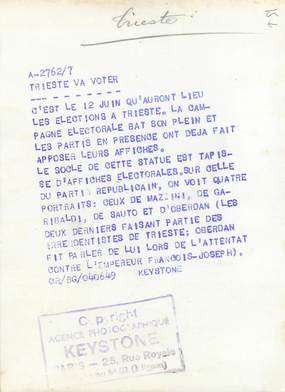 Trieste
A-2762/7
TRIESTE VA VOTER
C'EST LE 12 JUIN QU'AURONT LIEU
LES ELECTIONS A TRIESTE. LA CAM-
PAGNE ELECTORALE BAT SON PLEIN ET
LES PARTIS EN PRESENCE ONT DEJA FAIT
APPOSER LEURS AFFICHES.
LE SOCLE DE CETTE STATUE EST TAPIS-
SE D'AFFICHES ELECTORALES, SUR CELLE
DU PARTI REPUBLICAIN, ON VOIT QUATRE
PORTRAITS: CEUX DE MAZZINI, DE GA-
RIBALDI, DE SAUTO ET D'OBERDAN (LES
DEUX DERNIERS FAISANT PARTIE DES
IRREDENTISTES DE TRIESTE; OBERDAN
FIT PARLER DE LUI LORS DE L'ATTENTAT
CONTRE L'EMPEREUR FRANCOIS-JOSEPH).
CR/SG/040649 KEYSTONE
Copyright
AGENCE PHOTOGRAPHIQUE
KEYSTONE
PARIS - 25, Rue Royale